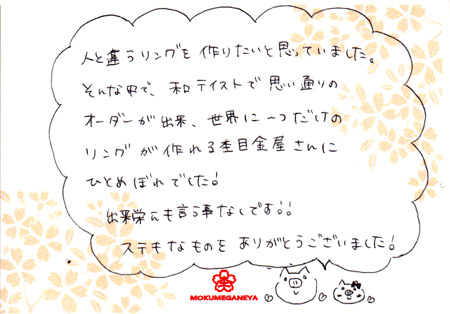 人と違うリングを作りたいと思っていました。
そんな中で、和テイストで思い通りの
オーダーが出来、世界に一つだけの
リングが作れる杢目金屋さんに
ひとめぼれでした!
出来栄えも言う事なしです!!
ステキなものをありがとうございました!
MOKUMEGANEYA